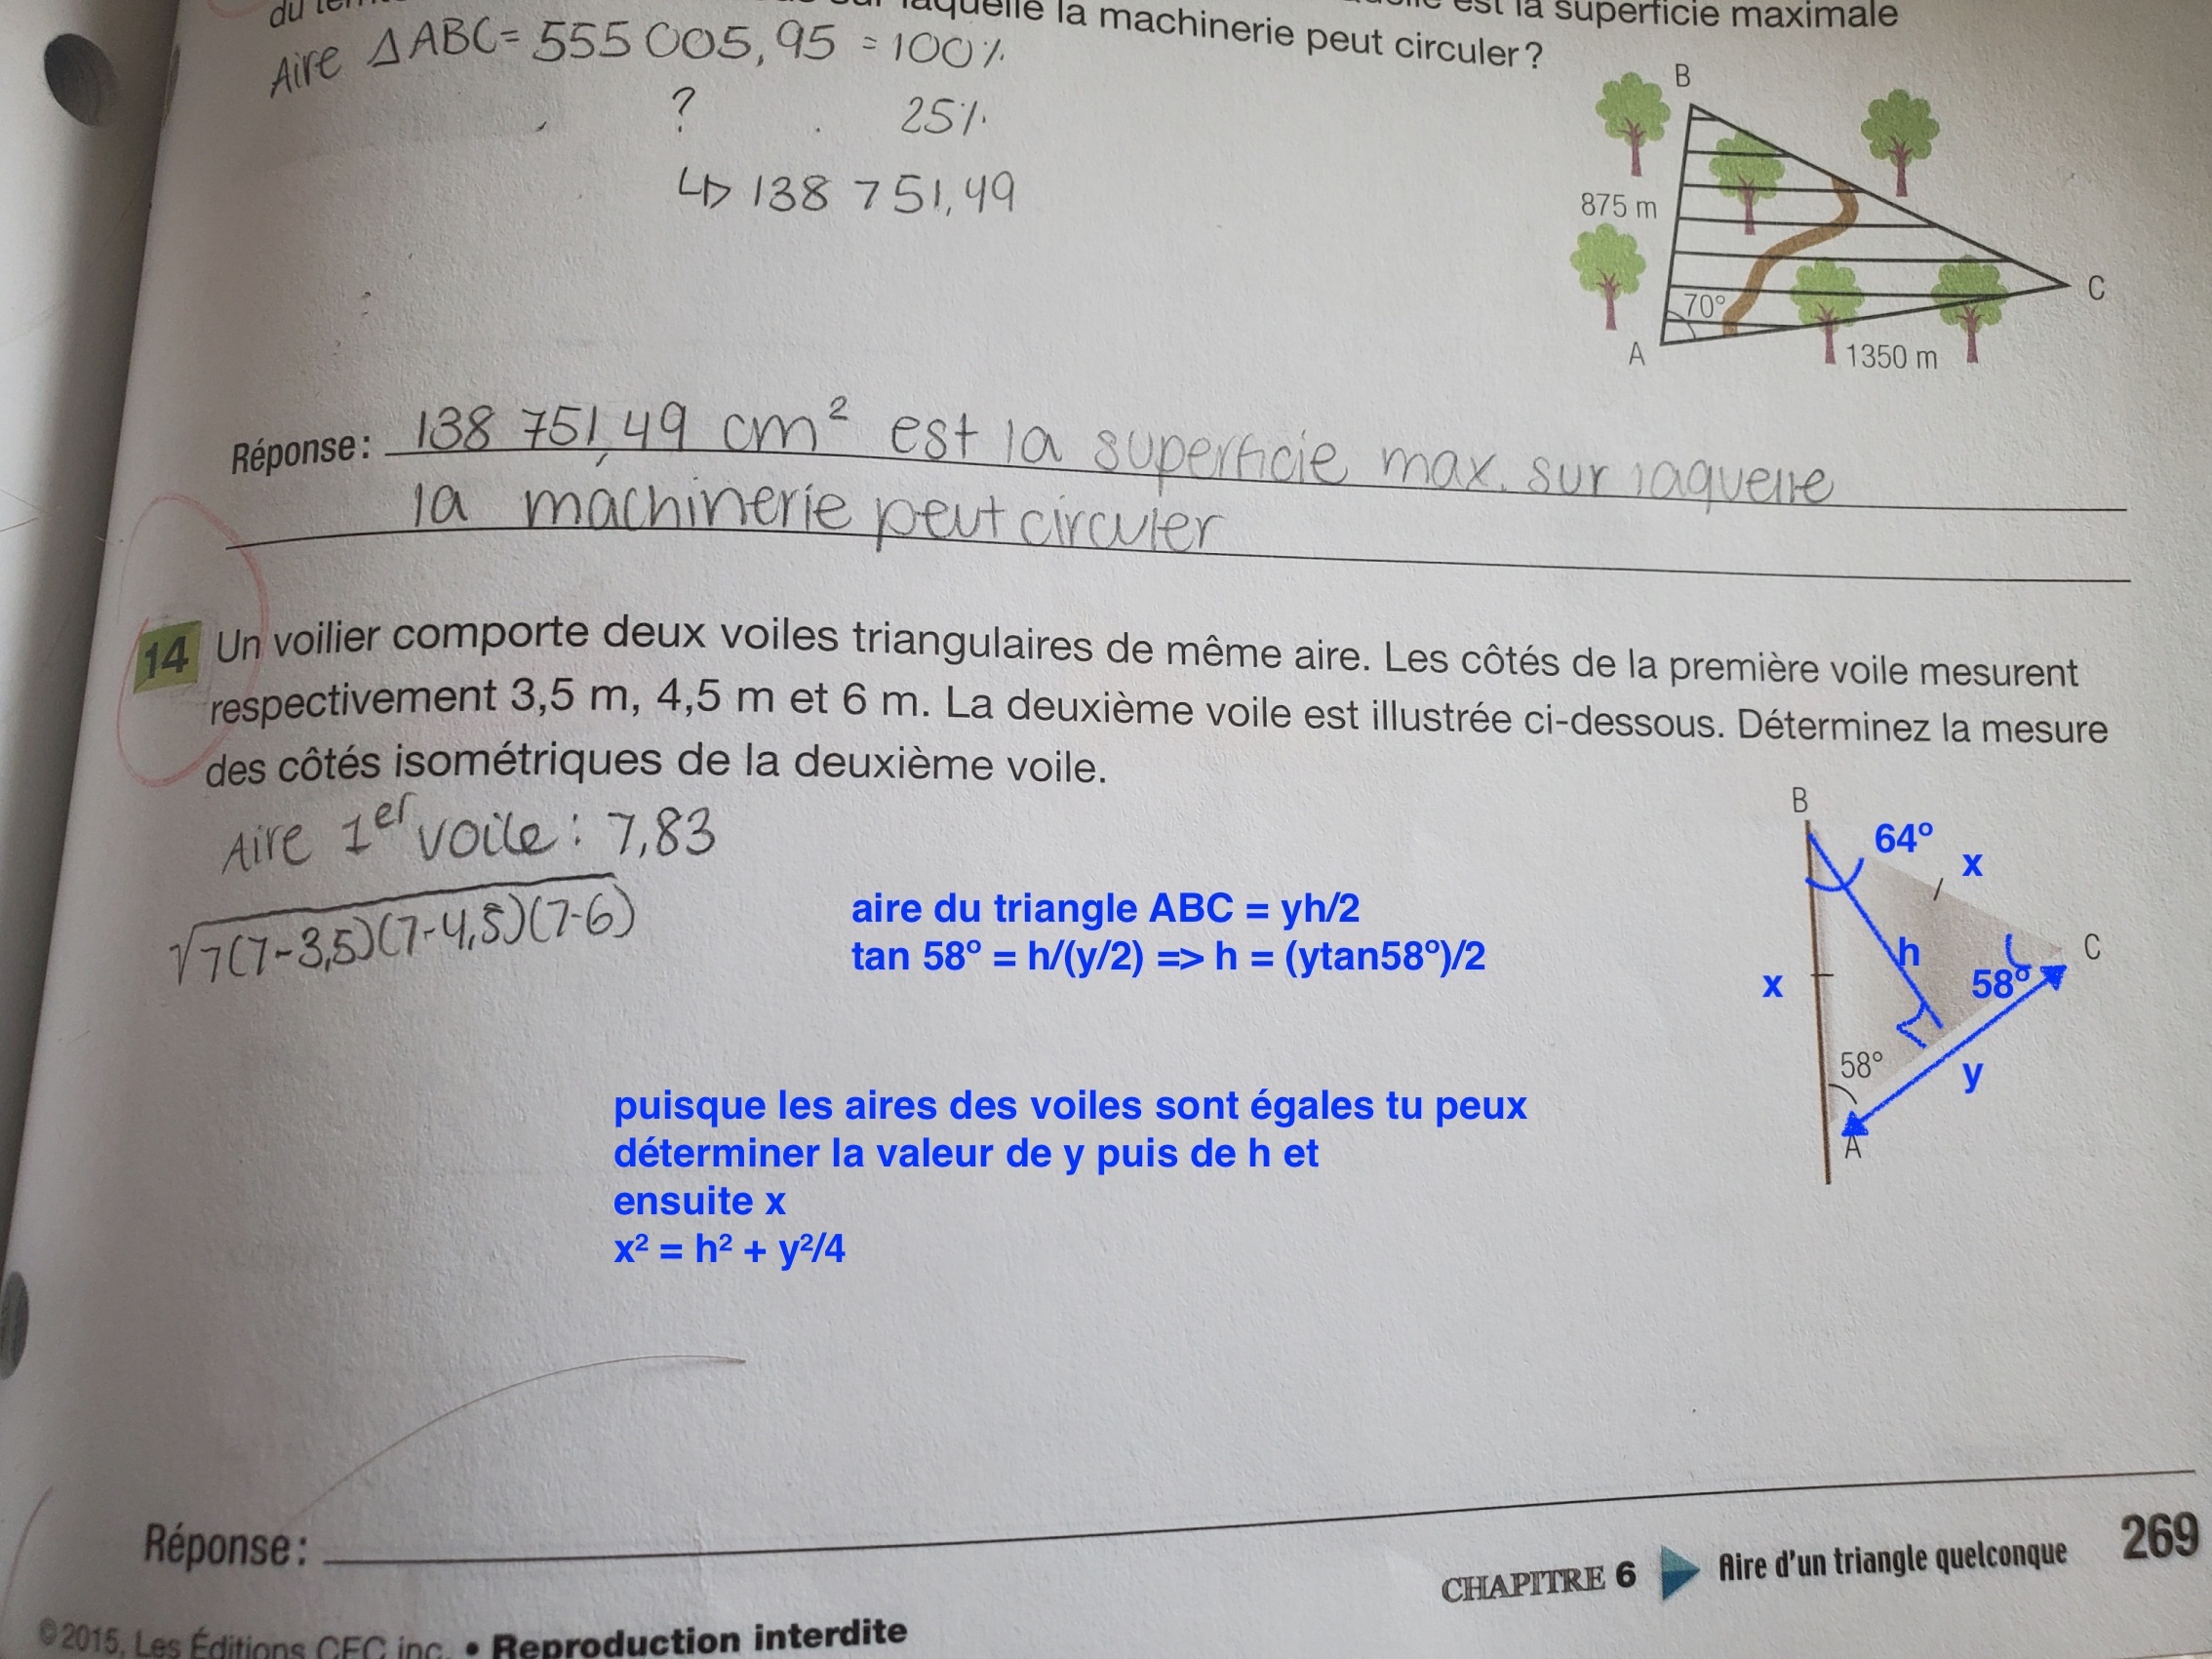 du
laquelle la machinerie peut circuler ?
est la superficie maximale
Aire Δ ABC = 555 005,95 = 100 %
? 25 %
↳ 138 751,49
B
875 m
70°
C
A
1350 m
Réponse : 138 751,49 cm² est la superficie max. sur laquelle
la machinerie peut circuler
14 Un voilier comporte deux voiles triangulaires de même aire. Les côtés de la première voile mesurent
respectivement 3,5 m, 4,5 m et 6 m. La deuxième voile est illustrée ci-dessous. Déterminez la mesure
des côtés isométriques de la deuxième voile.
Aire 1er voile : 7,83
√7(7-3,5)(7-4,5)(7-6)
aire du triangle ABC = yh/2
tan 58º = h/(y/2) => h = (ytan58º)/2
B
64º
x
h
C
58º
x
58°
y
A
puisque les aires des voiles sont égales tu peux
déterminer la valeur de y puis de h et
ensuite x
x² = h² + y²/4
Réponse :
CHAPITRE 6 Aire d'un triangle quelconque 269
©2015, Les Éditions CEC inc. • Reproduction interdite